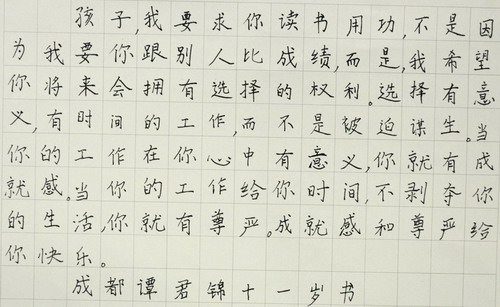 孩子,我要求你读书用功,不是因
为我要你跟别人比成绩,而是,我希望
你将来会拥有选择的权利。选择有意
义,有时间的工作,而不是被迫谋生。当
你的工作在你心中有意义,你就有成
就感。当你的工作给你时间,不剥夺你
的生活,你就有尊严。成就感和尊严给
你快乐。
成都谭君锦十一岁书